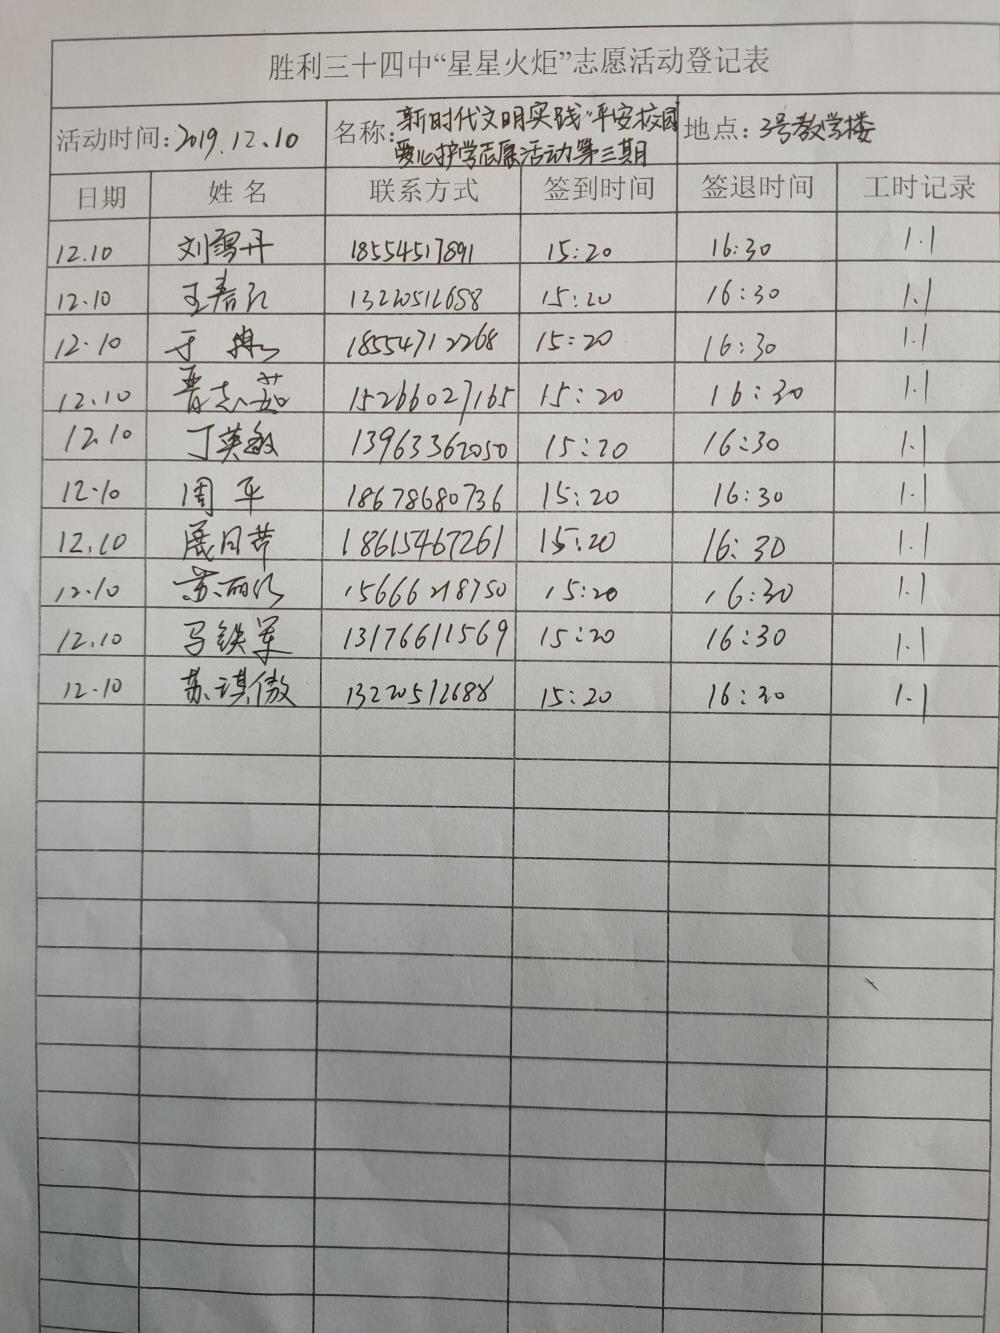 胜利三十四中“星星火炬”志愿活动登记表
活动时间:2019.12.10 名称:新时代文明实践“平安校园 爱心护学志愿活动第三期 地点:3号教学楼
日期 姓名 联系方式 签到时间 签退时间 工时记录
12.10 刘雪丹 18554517891 15:20 16:30 1.1
12.10 王春 13220512688 15:20 16:30 1.1
12.10 于 18554712268 15:20 16:30 1.1
12.10 晋志茹 15266027165 15:20 16:30 1.1
12.10 丁英敏 13963362050 15:20 16:30 1.1
12.10 周平 18678680736 15:20 16:30 1.1
12.10 展月芹 18615467261 15:20 16:30 1.1
12.10 苏丽 15666218750 15:20 16:30 1.1
12.10 马铁军 13176611569 15:20 16:30 1.1
12.10 苏琪傲 13220512688 15:20 16:30 1.1